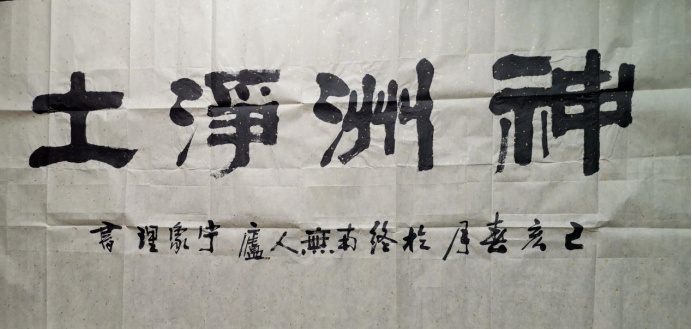 神洲淨土
己亥春月於終南無人廬宇象理書